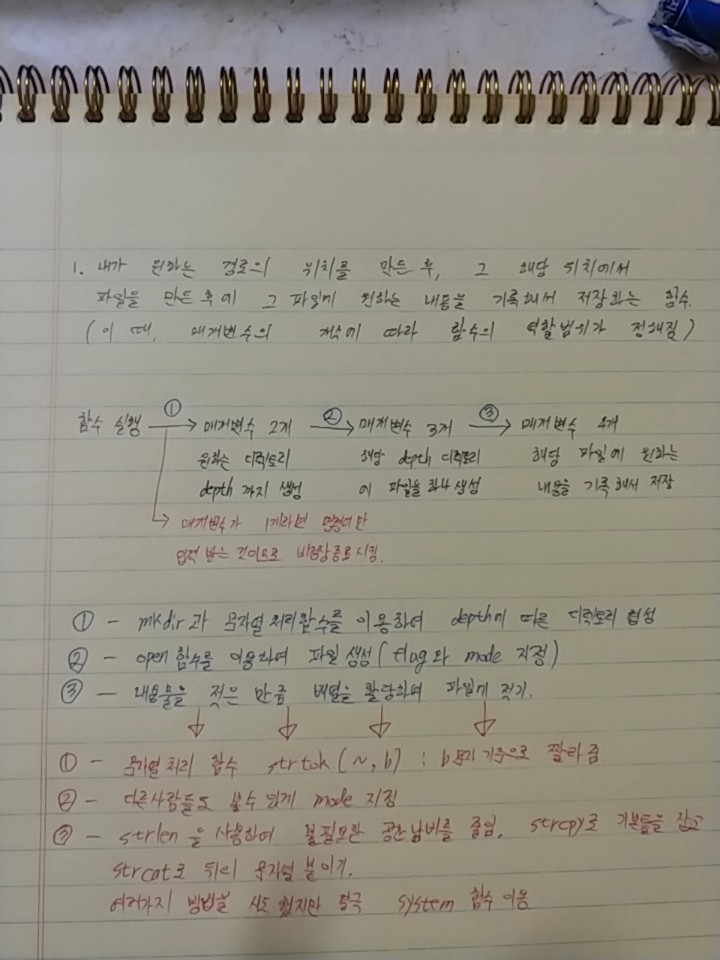 1. 내가 원하는 경로의 위치를 만든 후, 그 해당 위치에서
파일을 만든 후에 그 파일에 원하는 내용을 기록해서 저장하는 함수.
( 이 때, 매개변수의 개수에 따라 함수의 역할범위가 정해짐 )
함수 실행 ① → 매개변수 2개 ② → 매개변수 3개 ③ → 매개변수 4개
원하는 디렉토리 해당 depth 디렉토리 해당 파일에 원하는
depth 까지 생성 에 파일을 하나 생성 내용을 기록해서 저장
→ 매개변수가 1개라면 명령어만
입력 받는 것이므로 비정상종료시킴.
① - mkdir과 문자열 처리함수를 이용하여 depth에 따른 디렉토리 형성
② - open 함수를 이용하여 파일 생성 ( flag와 mode 지정 )
③ - 내용물을 적은 만큼 배열을 할당하여 파일에 적기.
① - 문자열처리 함수 strtok ( ~, b ) : b문자 기준으로 짤라줌
② - 다른사람들도 볼수 있게 mode 지정
③ - strlen을 사용하여 불필요한 공간낭비를 줄임, strcpy로 기본틀을 잡고
strcat로 뒤의 문자열 붙이기.
여러가지 방법을 시도 했지만 결국 system 함수 이용